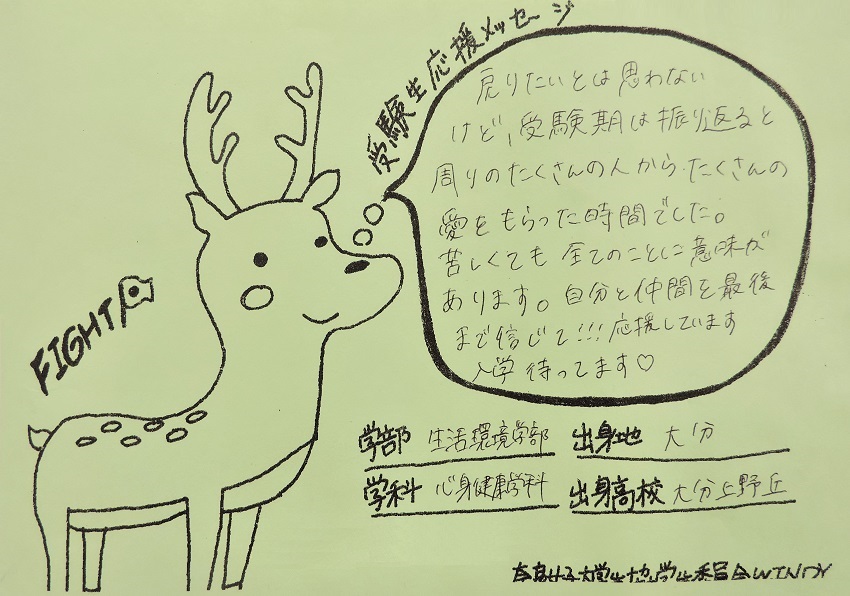 受験生応援メッセージ
戻りたいとは思わない
けど、受験期は振り返ると
周りのたくさんの人から、たくさんの
愛をもらった時間でした。
苦しくても全てのことに意味が
あります。自分と仲間を最後
まで信じて!!!応援しています
入学待ってます♡
FIGHT
学部 生活環境学部 出身地 大分
学科 心身健康学科 出身高校 大分上野丘
奈良女子大学生協学生委員会WINDY